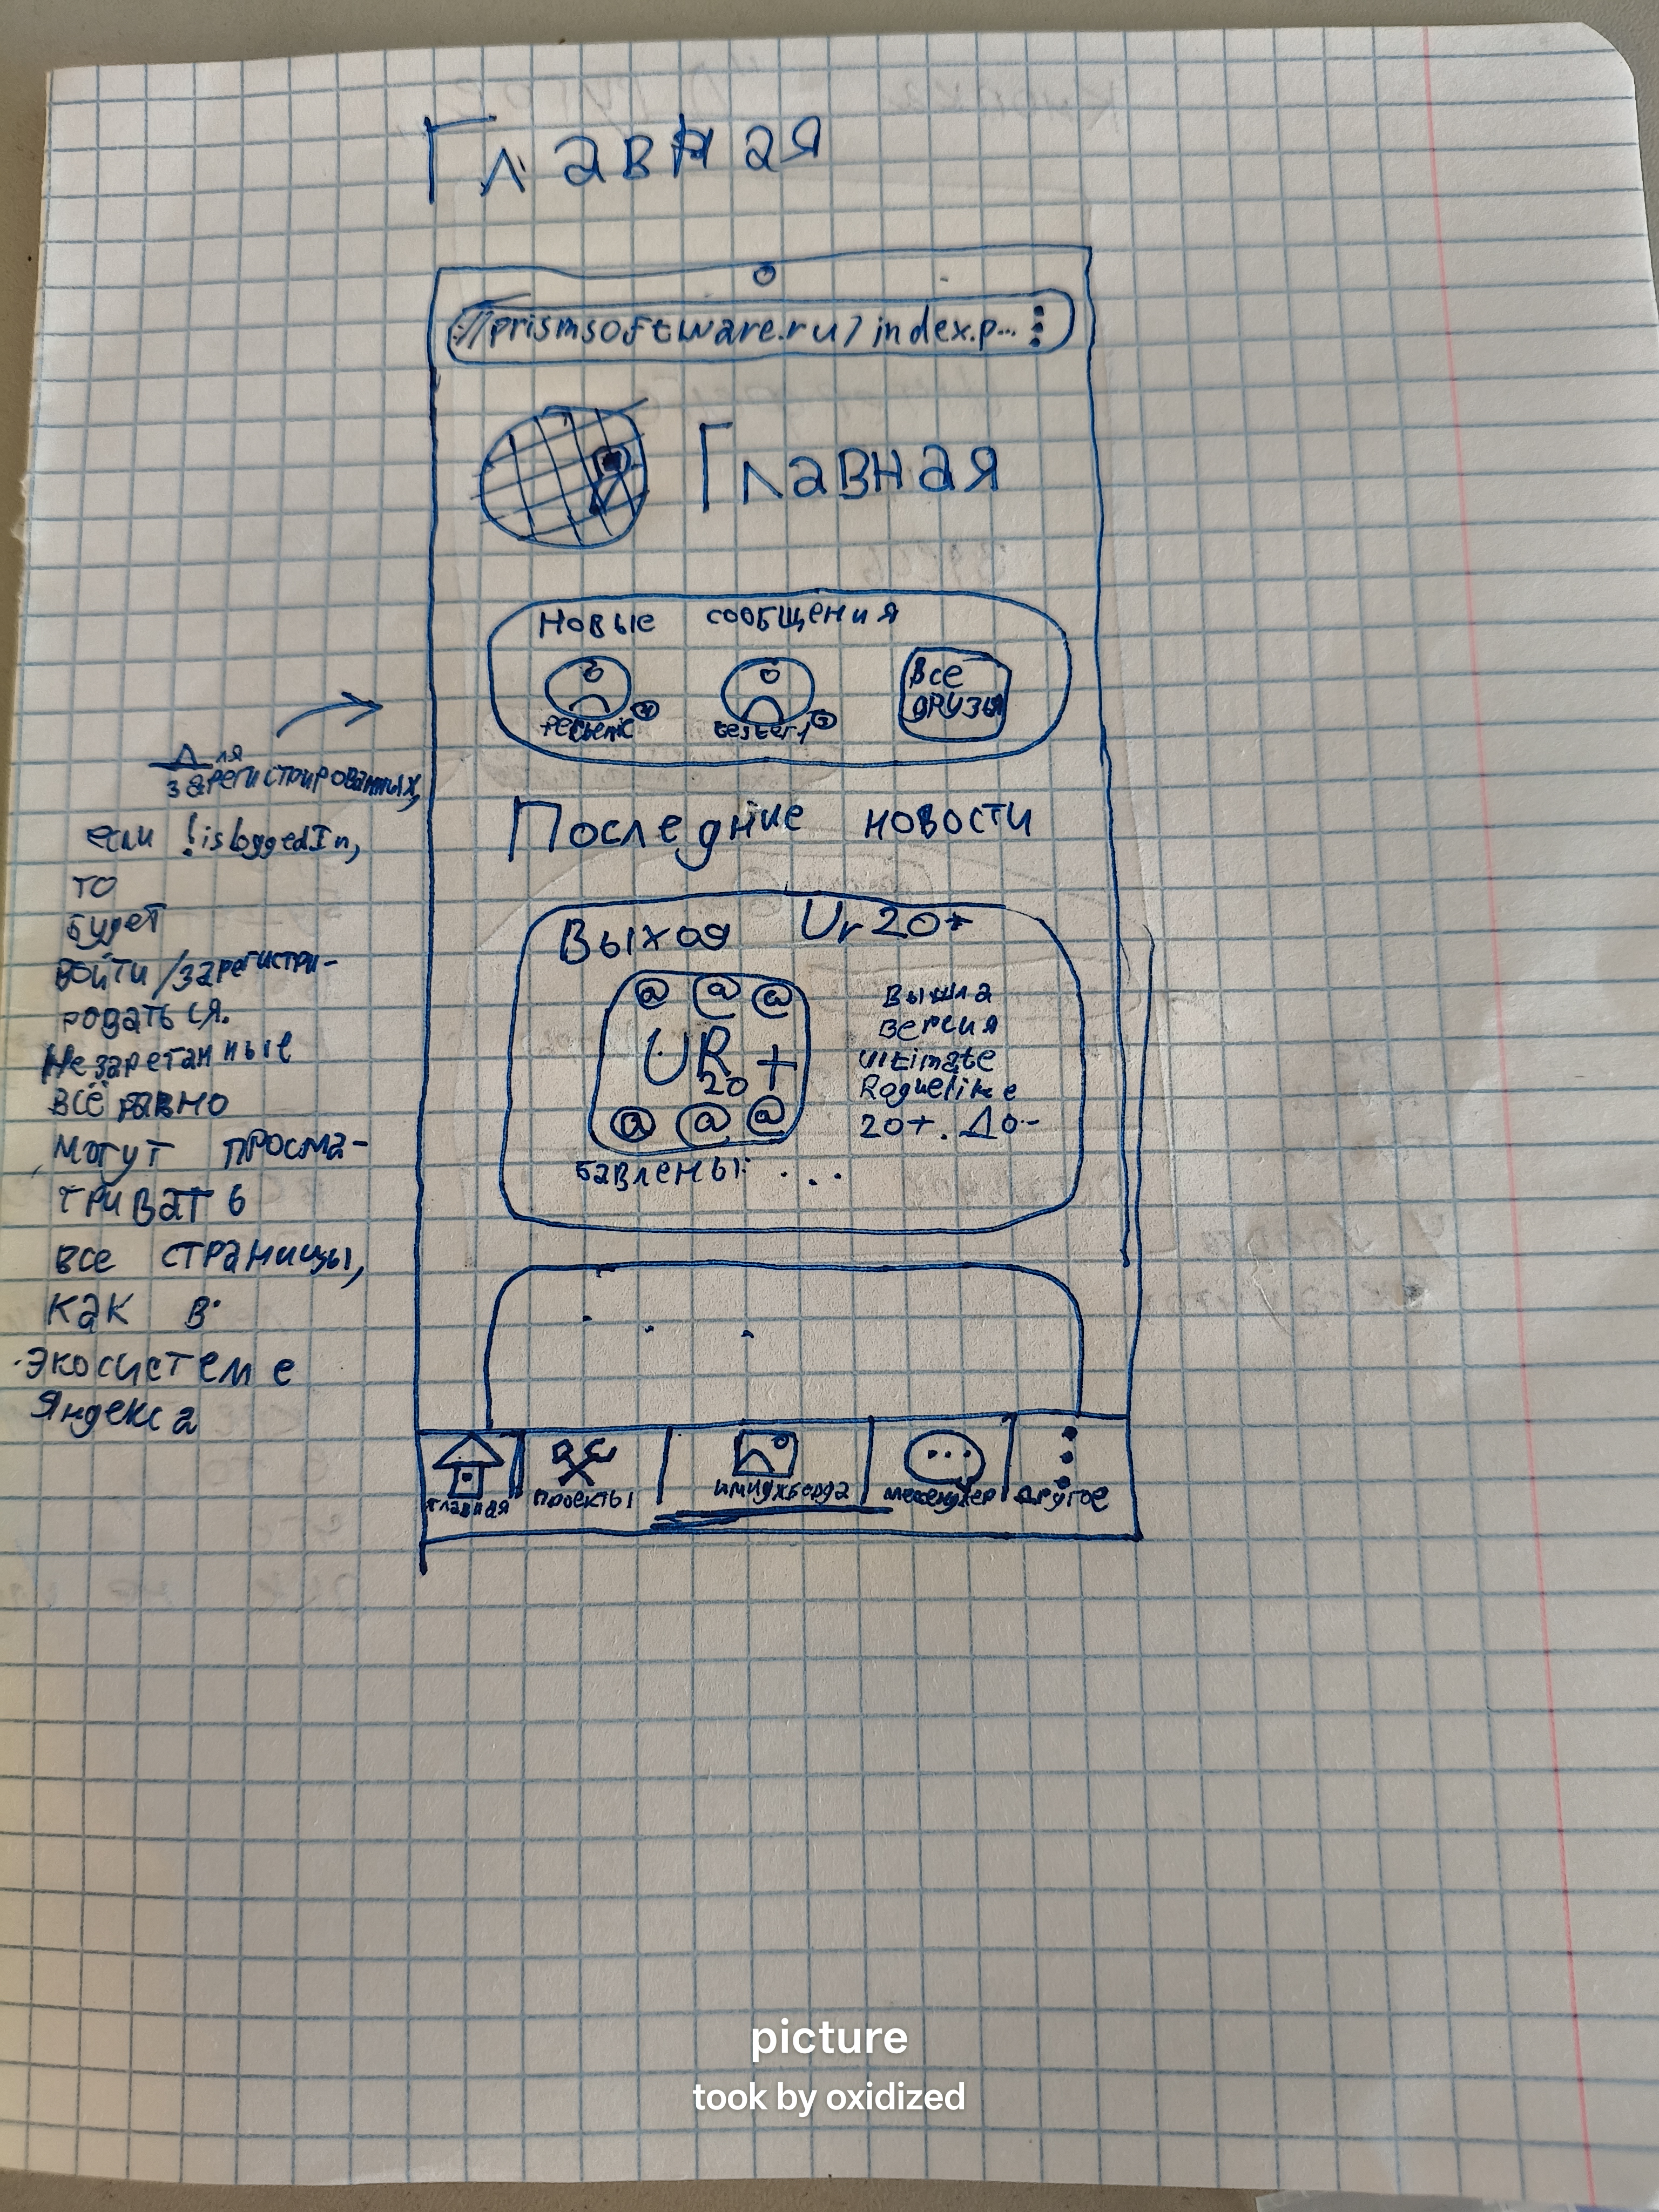 Главная
://prismsoftware.ru/index.p...
Главная
Новые сообщения
tester1
Все
друзья
Для
зарегистрированных,
если !isloggedIn,
то
будет
войти/зарегистри-
роваться.
Незареганные
всё равно
могут просма-
тривать
все страницы,
как в
экосистеме
Яндекса
Последние новости
Выход Ur 20+
@ @ @
UR +
20
@ @ @
Вышла
версия
Ultimate
Roguelike
20+. До-
бавлены: ...
...
Главная
проекты
имиджборда
мессенджер
другое
picture
took by oxidized